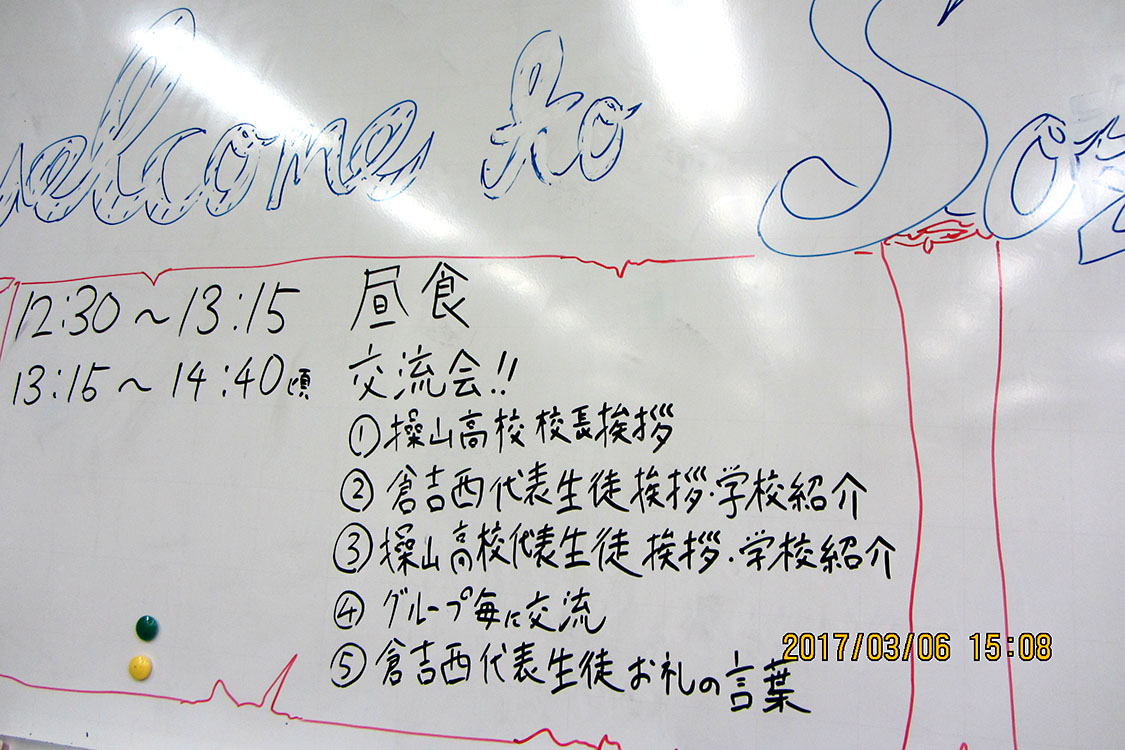 Welcome to So
12:30～13:15 昼食
13:15～14:40頃 交流会!!
①操山高校校長挨拶
②倉吉西代表生徒挨拶・学校紹介
③操山高校代表生徒挨拶・学校紹介
④グループ毎に交流
⑤倉吉西代表生徒お礼の言葉
2017/03/06 15:08